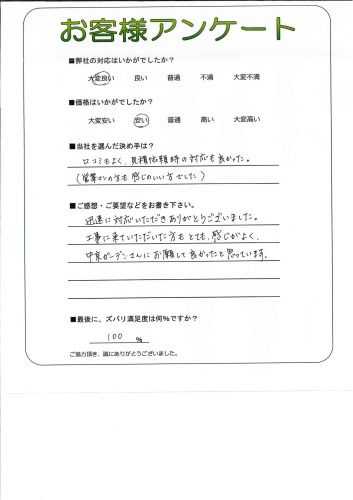 お客様アンケート
■弊社の対応はいかがでしたか？
大変良い 良い 普通 不満 大変不満
■価格はいかがでしたか？
大変安い 安い 普通 高い 大変高い
■当社を選んだ決め手は？
口コミもよく、見積依頼時の対応も良かった。
(営業マンの方も感じのいい方でした)
■ご感想・ご要望などをお書き下さい。
迅速に対応いただきありがとうございました。
工事に来ていただいた方もとても、感じがよく、
中京ガーデンさんにお願して良かったと思っています。
■最後に、ズバリ満足度は何%ですか？
100 %
ご協力頂き、誠にありがとうございました。